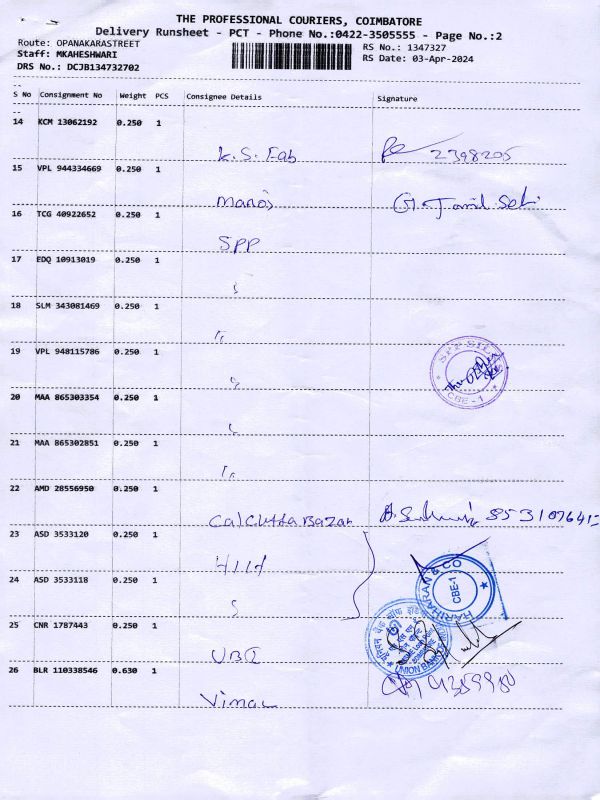 THE PROFESSIONAL COURIERS, COIMBATORE
Delivery Runsheet - PCT - Phone No.:0422-3505555 - Page No.:2
Route: OPANAKARASTREET
Staff: MKAHESHWARI
DRS No.: DCJB134732702
RS No.: 1347327
RS Date: 03-Apr-2024
S No Consignment No Weight PCS Consignee Details Signature
14 KCM 13062192 0.250 1
K.S. Fab 2398205
15 VPL 944334669 0.250 1
Manos G. Tamil Selvi
16 TCG 40922652 0.250 1
SPP
17 EDQ 10913019 0.250 1
18 SLM 343081469 0.250 1
19 VPL 948115786 0.250 1
SPP SILK
CBE-1
20 MAA 865303354 0.250 1
21 MAA 865302851 0.250 1
22 AMD 28556950 0.250 1
Calcutta Bazar
23 ASD 3533120 0.250 1
HARIHARAN & CO
CBE-1
24 ASD 3533118 0.250 1
25 CNR 1787443 0.250 1
UBI
UNION BANK
26 BLR 110338546 0.630 1
Vimal